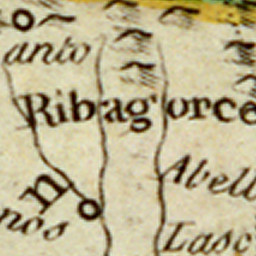 anto
Ribagorce
Abell
n
nos
Lasc